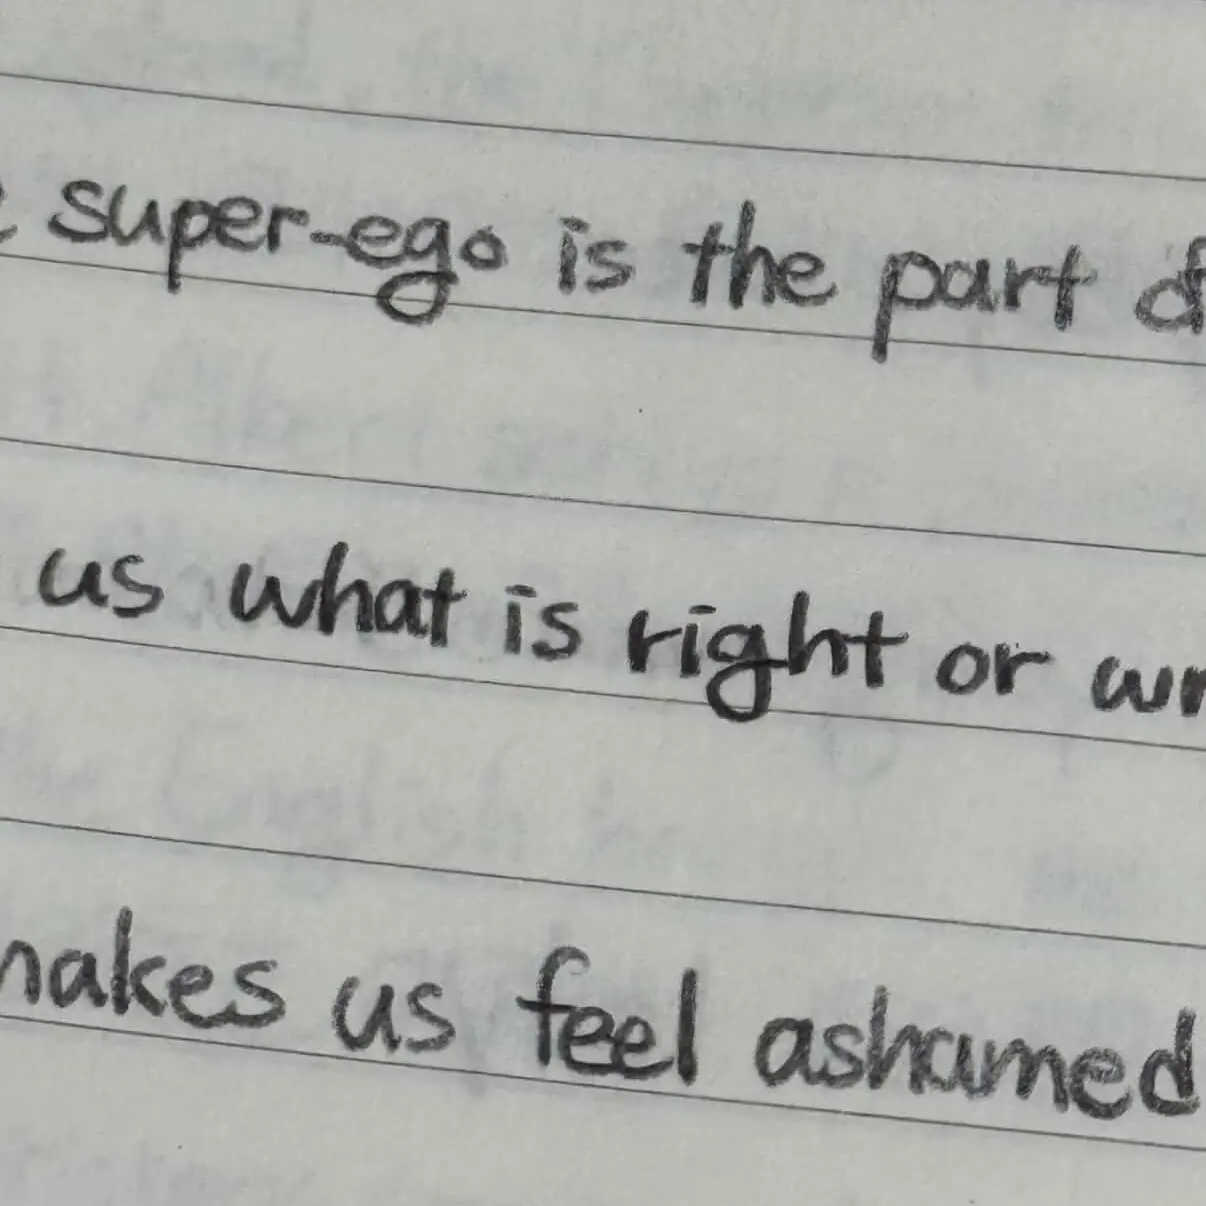 super-ego is the part of
us what is right or
makes us feel ashamed